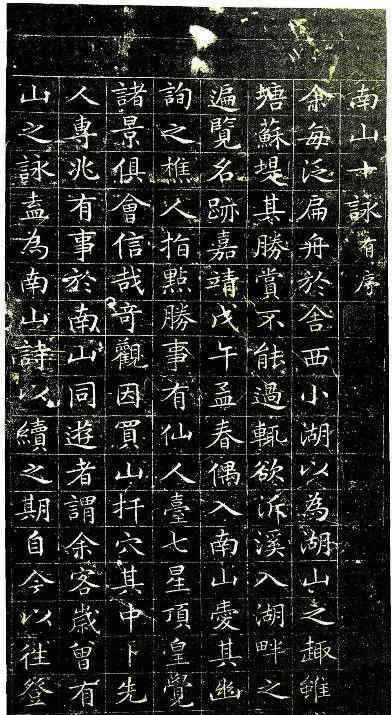 南山十詠有序
余每泛扁舟於舍西小湖以為湖山之趣雖
塘蘇堤其勝賞不能過輒欲泝溪入湖畔之
遍覽名跡嘉靖戊午孟春偶入南山愛其幽
詢之樵父指點勝事有仙人臺七星頂皇覺
諸景俱會信哉奇觀因買山扦穴其中卜先
人專兆有事於南山同遊者謂余客歲曾有
山之詠盍為南山詩以續之期自今以往登